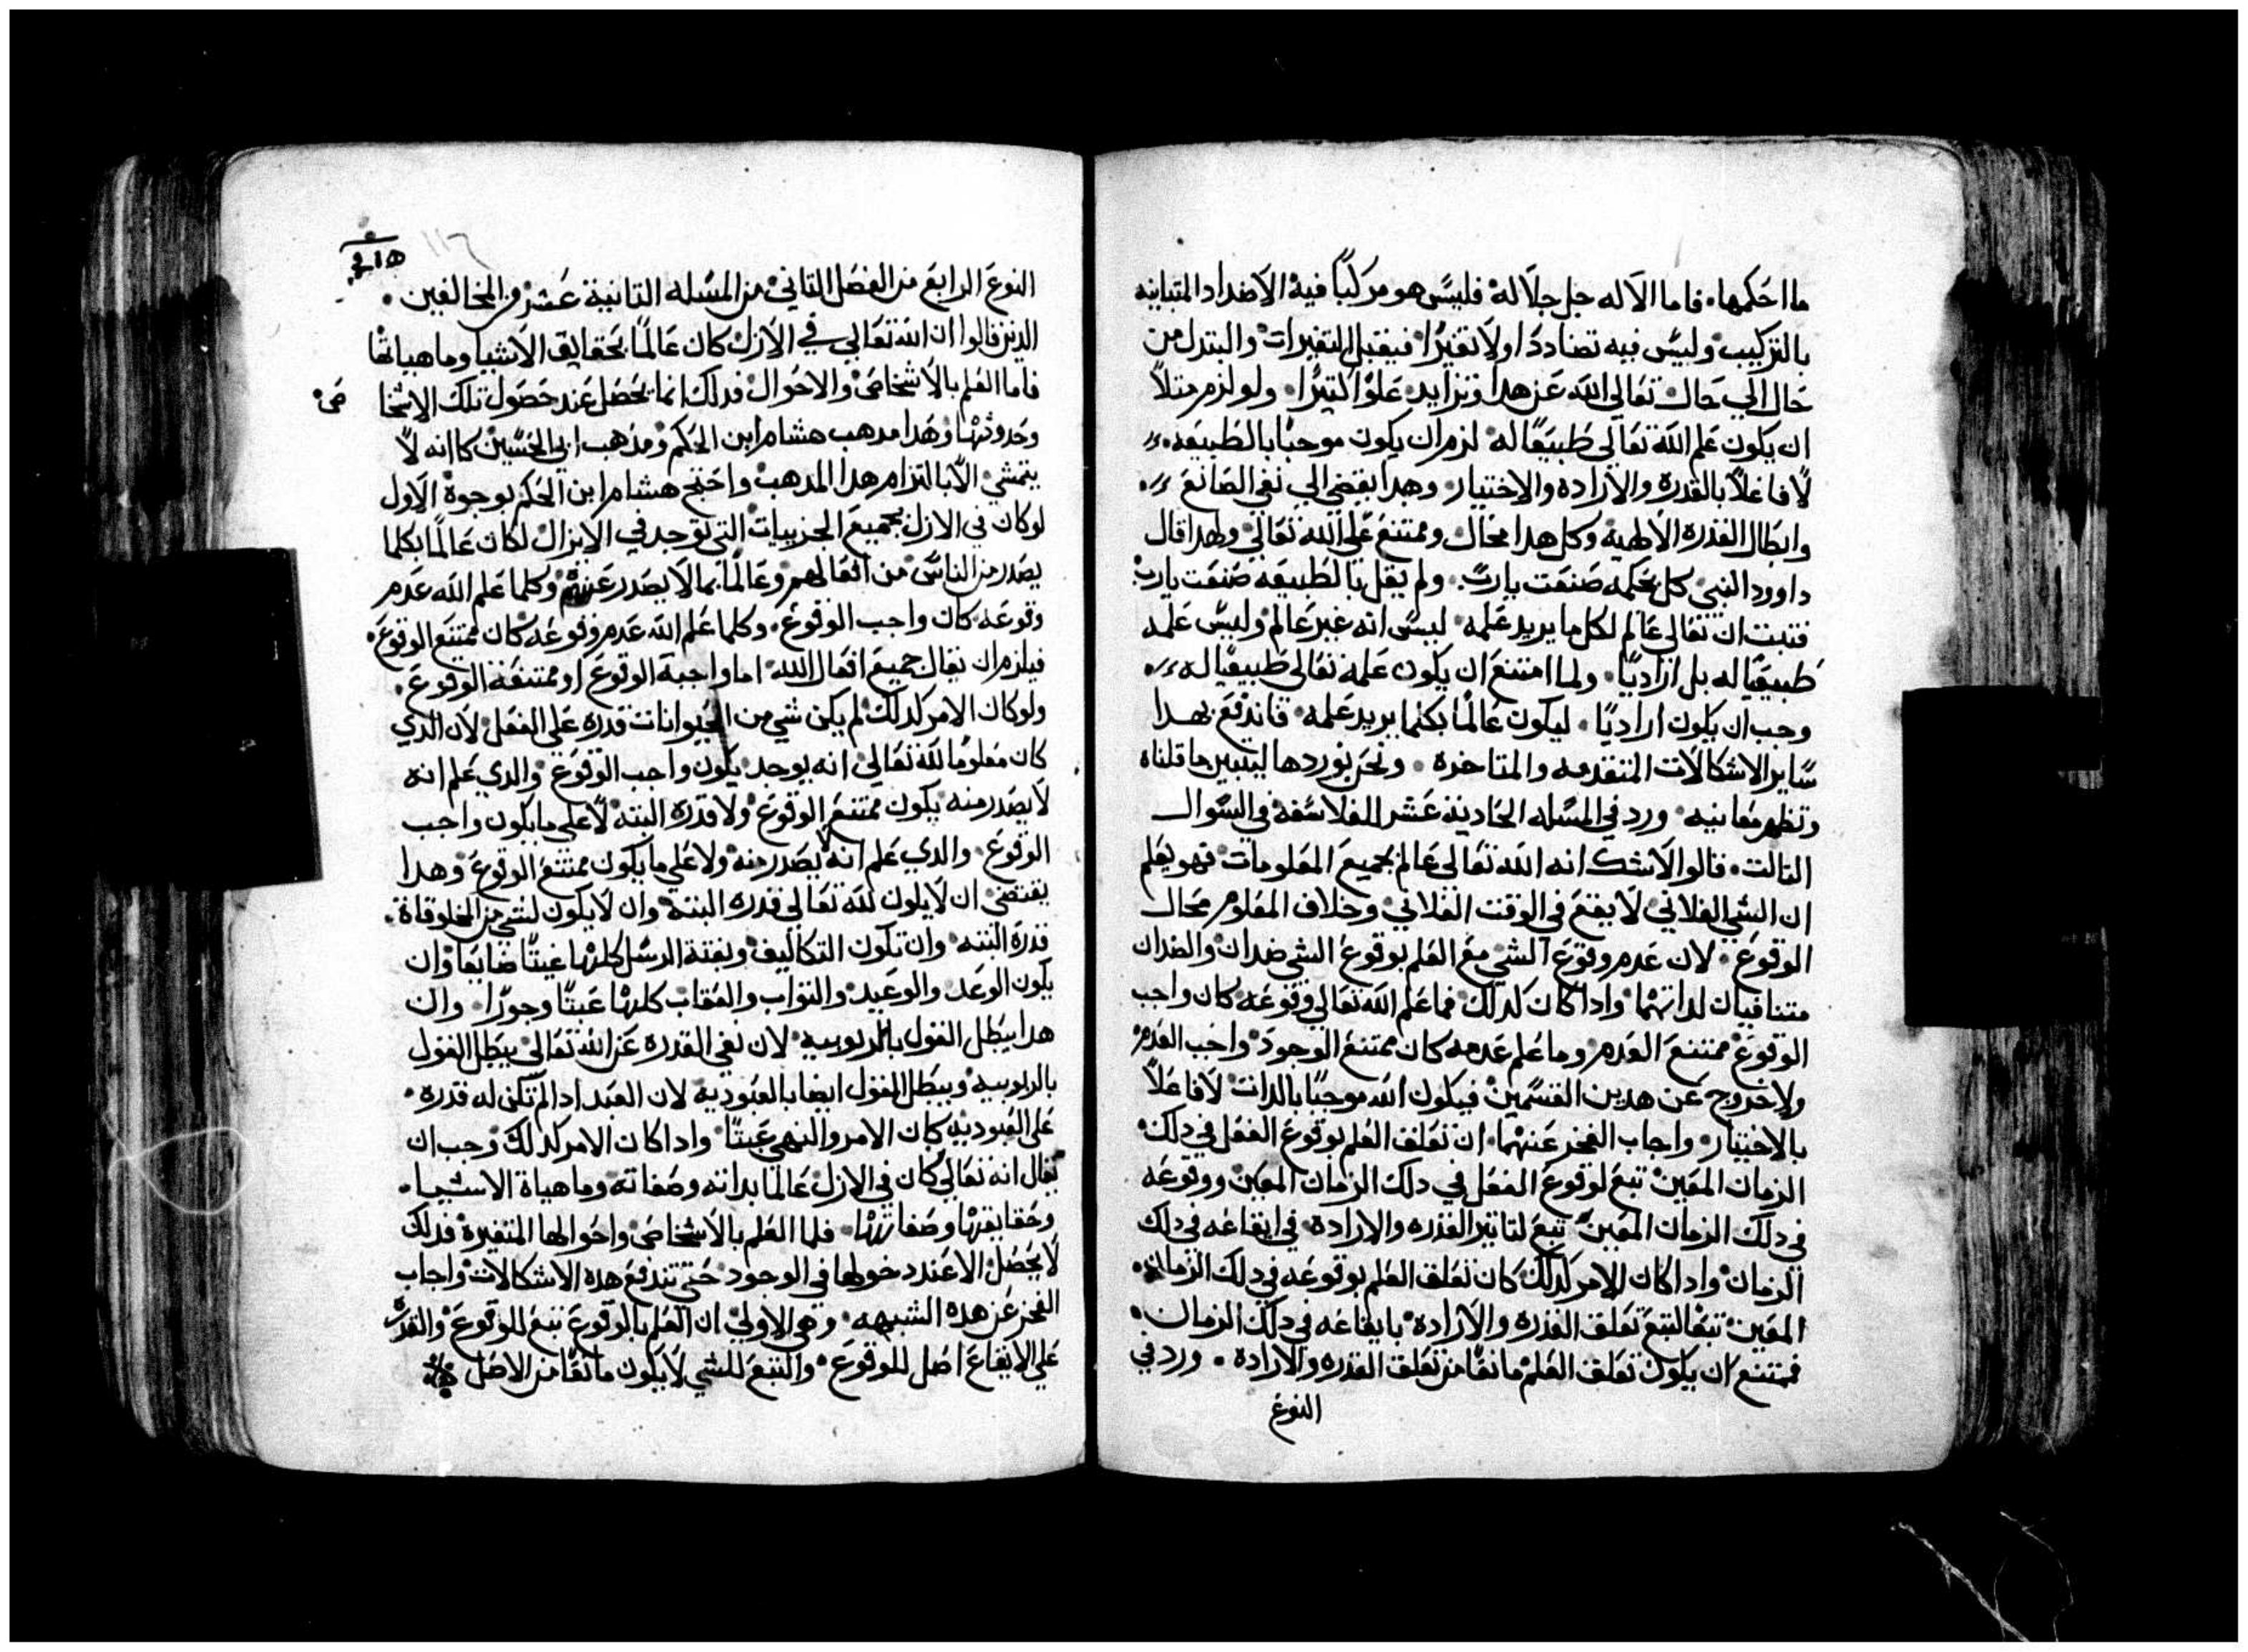 ما احكمها. فاما الاله جل جلاله فليس هو مركبًا فيه الاضداد المتباينه
بالتركيب وليس فيه تضاددًا ولا تغيرًا فيقبل التغيرات والتبدل من
حال الي حال تعالي الله عن هدا وتزايد علوًا كتيرًا. ولو لزم متلاً
ان يكون علم الله تعالي طبيعًا له لزم ان يكون موجبًا بالطبيعه
لا فاعلاً بالقدرة والاراده والاختيار. وهدا يقضي الي نفي الصانع
وابطال القدره الالهية وكل هدا محال وممتنع علي الله تعالي ولهدا قال
داوود النبي كل بحكمه صنعت يارب. ولم يقل بالطبيعه صنعت يارب
فتبت ان تعالي عالم لكل ما يريد علمه ليس انه غير عالم وليس علمه
طبيعيًا له بل اراديًا. ولما امتنع ان يكون علمه تعالي طبيعيًا له
وجب ان يكون اراديًا. ليكون عالمًا بكلما يريد علمه فاندفع بهدا
ساير الاشكالات المتقدمه والمتاخرة. ونحن نوردها ليتبين ما قلناه
وتظهر معانيه ورد في المسله الحادية عشر للفلاسفه في السوال
التالت. قالوا لاشك انه الله تعالي عالم بجميع المعلومات فهو يعلم
ان الشي الفلاني لا يقع في الوقت الفلاني وخلاف المعلوم محال
الوقوع. لان عدم وقوع الشي مع العلم بوقوع الشي ضدان والضدان
متنافيان لداتهما وادا كان كدلك فما علم الله تعالي وقوعه كان واجب
الوقوع ممتنع العدم وما علم عدمه كان ممتنع الوجود واجب العدم
ولا خروج عن هدين القسمين فيكون الله موجبًا بالدات لا فاعلاً
بالاختيار. واجاب الفخر عنهما. ان تعلق العلم بوقوع الفعل في دلك
الزمان المعين تبع لوقوع الفعل في دلك الزمان المعين ووقوعه
في دلك الزمان المعين تبع لتاتير القدره والارادة في ايقاعه في دلك
الزمان وادا كان الامر كدلك كان تعلق العلم بوقوعه في دلك الزمان
المعين تبعًا لتبع تعلق القدرة والارادة بايقاعه في دلك الزمان.
فممتنع ان يكون تعلق العلم مانعًا من تعلق القدره والارادة. ورد في
النوع
١١٦
النوع الرابع من الفصل التاني من المسله التانية عشر من المخالفين.
الدين قالوا ان الله تعالي في الازل كان عالمًا بحقايق الاشيا وماهياتها
فاما العلم بالاشخاص والاحوال فدلك انما يحصل عند حصول تلك الاشخا ص
وحدوتها وهدا مدهب هشام ابن الحكم ومدهب ابي الحسين كاانه لا
يتمشي الا بالتزام هدا المدهب واحتج هشام ابن الحكم بوجوة الاول
لو كان في الازل بجميع الجزييات التي توجد في الايزال لكان عالمًا بكلما
يصدر من الناس من افعالهم وعالمًا بما لا يصدر عنهم وكلما علم الله عدم
وقوعه كان واجب الوقوع. وكلما علم الله عدم وقوعه كان ممتنع الوقوع.
فيلزم ان يقال جميع افعال الله اما واجبة الوقوع او ممتنعة الوقوع.
ولو كان الامر كدلك لم يكن شي من الحيوانات قدرة علي الفعل لان الدي
كان معلومًا لله تعالي انه يوجد يكون واجب الوقوع والدي علم انه
لا يصدر منه يكون ممتنع الوقوع ولا قدرة البته لا علي ما يكون واجب
الوقوع. والدي علم انه لا يصدر منه ولا علي ما يكون ممتنع الوقوع وهدا
يقتضي ان لا يكون لله تعالي قدره البته وان لا يكون لشي من المخلوقاة.
قدرة البته وان تكون التكاليف وبعتة الرسل كلها عبتًا ضايعًا وان
يكون الوعد والوعيد والتواب والعقاب كلها عبتًا وجورًا. وان
هدا يبطل القول بالربوبيه لان نفي القدره عن الله تعالي يبطل القول
بالربوبيه ويبطل القول ايضا بالعبودية لان العبد ادا لم تكن له قدره.
علي العبودية كان الامر والنهي عبتًا وادا كان الامر كدلك وجب ان
يقال انه تعالي كان في الازل عالمًا بداته وصفاته وماهياة الاشيا.
وحقايقها وصفاتها. فلما العلم بالاشخاص واحوالها المتغيرة فدلك
لا يحصل الا عند دخولها في الوجود حتي تندفع هده الاشكالات واجاب
الفخر عن هده الشبهه. وهي الاولي ان العلم بالوقوع تبع للوقوع والقدرة
علي الايقاع اصل للوقوع. والتبع للشي لا يكون مانعًا من الاصل